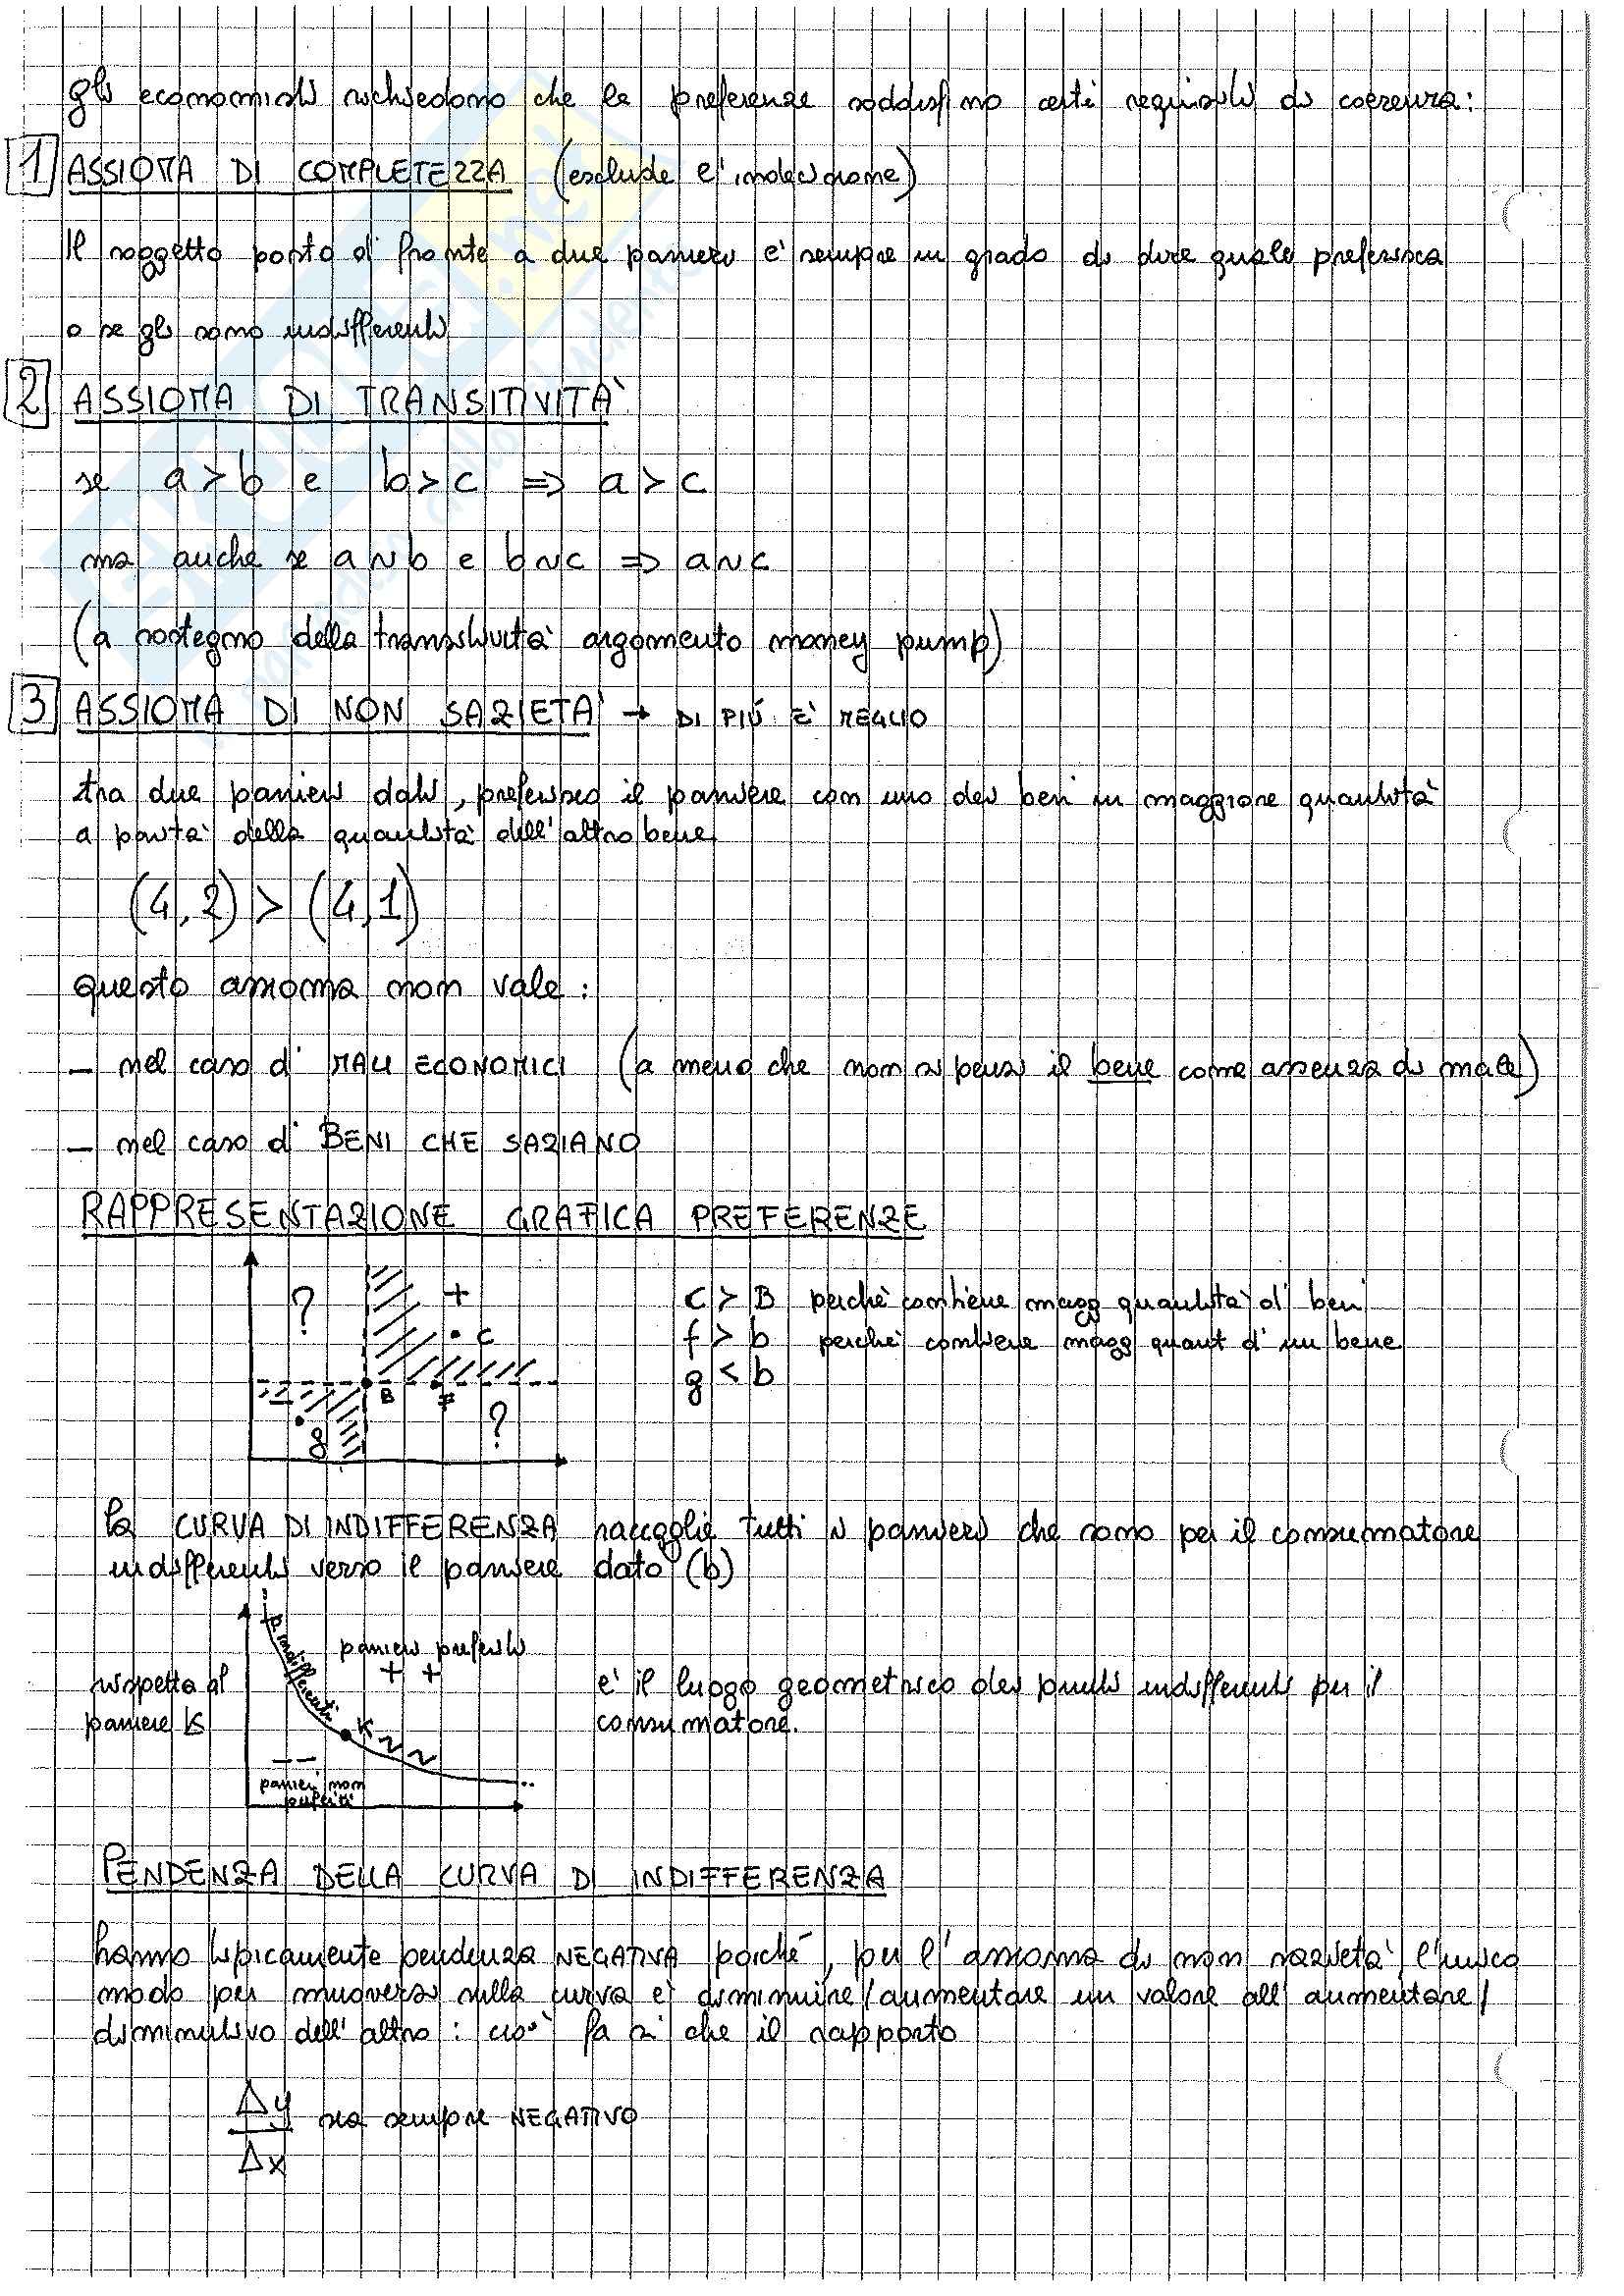 gli economisti richiedono che le preferenze soddisfino certi requisiti di coerenza:
1 ASSIOMA DI COMPLETEZZA (esclude l'indecisione)
Il soggetto posto di fronte a due panieri è sempre in grado di dire quale preferisca
o se gli sono indifferenti
2 ASSIOMA DI TRANSITIVITÀ
se a > b e b > c ⇒ a > c
ma anche se a ~ b e b ~ c ⇒ a ~ c
(a sostegno della transitività argomento money pump)
3 ASSIOMA DI NON SAZIETÀ → DI PIÙ È MEGLIO
tra due panieri dati, preferisco il paniere con uno dei beni in maggiore quantità
a parità della quantità dell'altro bene
(4,2) > (4,1)
questo assioma non vale:
- nel caso di MALI ECONOMICI (a meno che non si pensi il bene come assenza di male)
- nel caso di BENI CHE SAZIANO
RAPPRESENTAZIONE GRAFICA PREFERENZE
? +
C
B F
g ?
C > B perché contiene magg quantità di beni
f > b perché contiene magg quant di un bene
g < b
la CURVA DI INDIFFERENZA raccoglie tutti i panieri che sono per il consumatore
indifferenti verso il paniere dato (b)
rispetto al
paniere K
p. indifferenti
panieri preferiti
+ +
K ~ ~
- -
panieri non
preferiti
è il luogo geometrico dei punti indifferenti per il
consumatore.
PENDENZA DELLA CURVA DI INDIFFERENZA
hanno tipicamente pendenza NEGATIVA poiché, per l'assioma di non sazietà, l'unico
modo per muoversi sulla curva è diminuire/aumentare un valore all'aumentare/
diminutivo dell'altro: ciò fa sì che il rapporto
Δy
Δx
sia sempre NEGATIVO